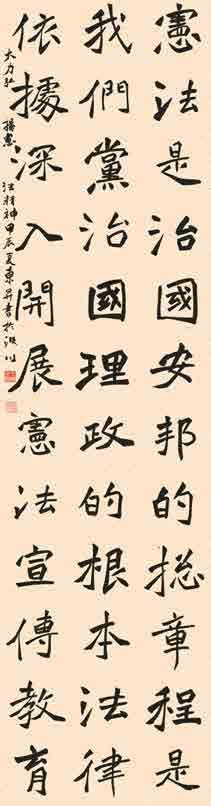 憲法是治國安邦的總章程是
我們黨治國理政的根本法律
依據深入開展憲法宣傳教育
大力弘揚憲法精神甲辰夏東昇書於銀川